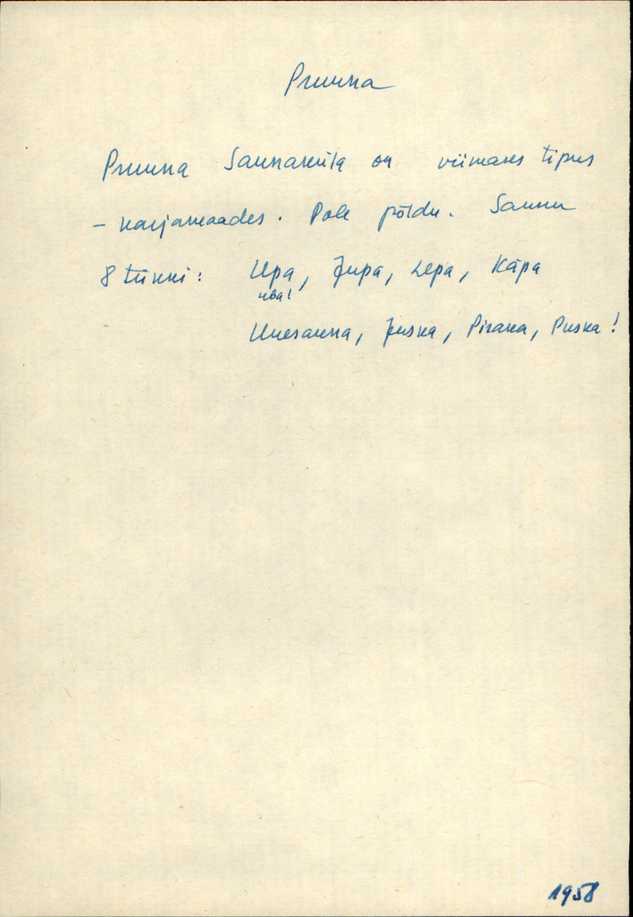 Pruuna
Pruuna Saunaküla on viimases tipus
- karjamaades. Pole põldu. Saunu
8 tükki: Upa, Jupa, Lepa, Käpa
uba!
Uuesauna, Juska, Pisaka, Puska!
1958